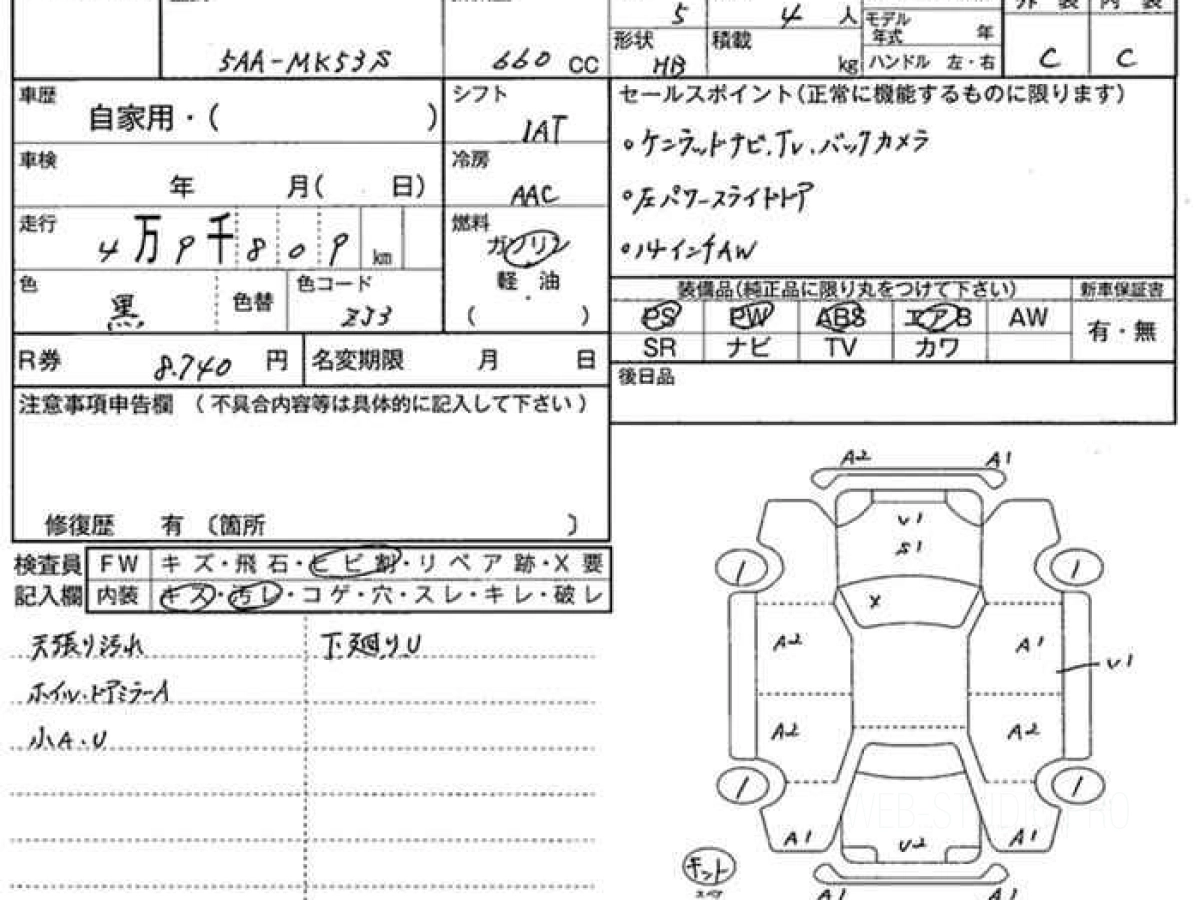 外 装 内 装
5 4 人 モデル年式 年
5AA-MK53S 660 CC
形状 HB 積載 kg ハンドル 左・右 C C
車歴 自家用・( )
シフト IAT
セールスポイント(正常に機能するものに限ります)
。ケンウッドナビ.TV.バックカメラ
。左パワースライドドア
。14インチAW
車検 年 月( 日)
冷房 AAC
走行 4万9千809 km
燃料 ガソリン
軽・油
( )
色 黒 色替 色コード ZJ3
装備品(純正品に限り丸をつけて下さい) 新車保証書
PS PW ABS エアB AW 有・無
SR ナビ TV カワ
R券 8.740 円 名変期限 月 日
後日品
注意事項申告欄 (不具合内容等は具体的に記入して下さい)
修復歴 有 〔箇所 〕
検査員 FW キズ・飛石・ヒビ割・リペア跡・X要
記入欄 内装 キズ・汚レ・コゲ・穴・スレ・キレ・破レ
天張り汚れ 下廻りU
ホイル.ドアミラーA
小A.U
A2 A1
V1
S1
1 1
X
A2 A1 V1
A2 A2
1 1
WEB-STUDIO PRO
A1 U2 A1
キット
スペア
A1 A1